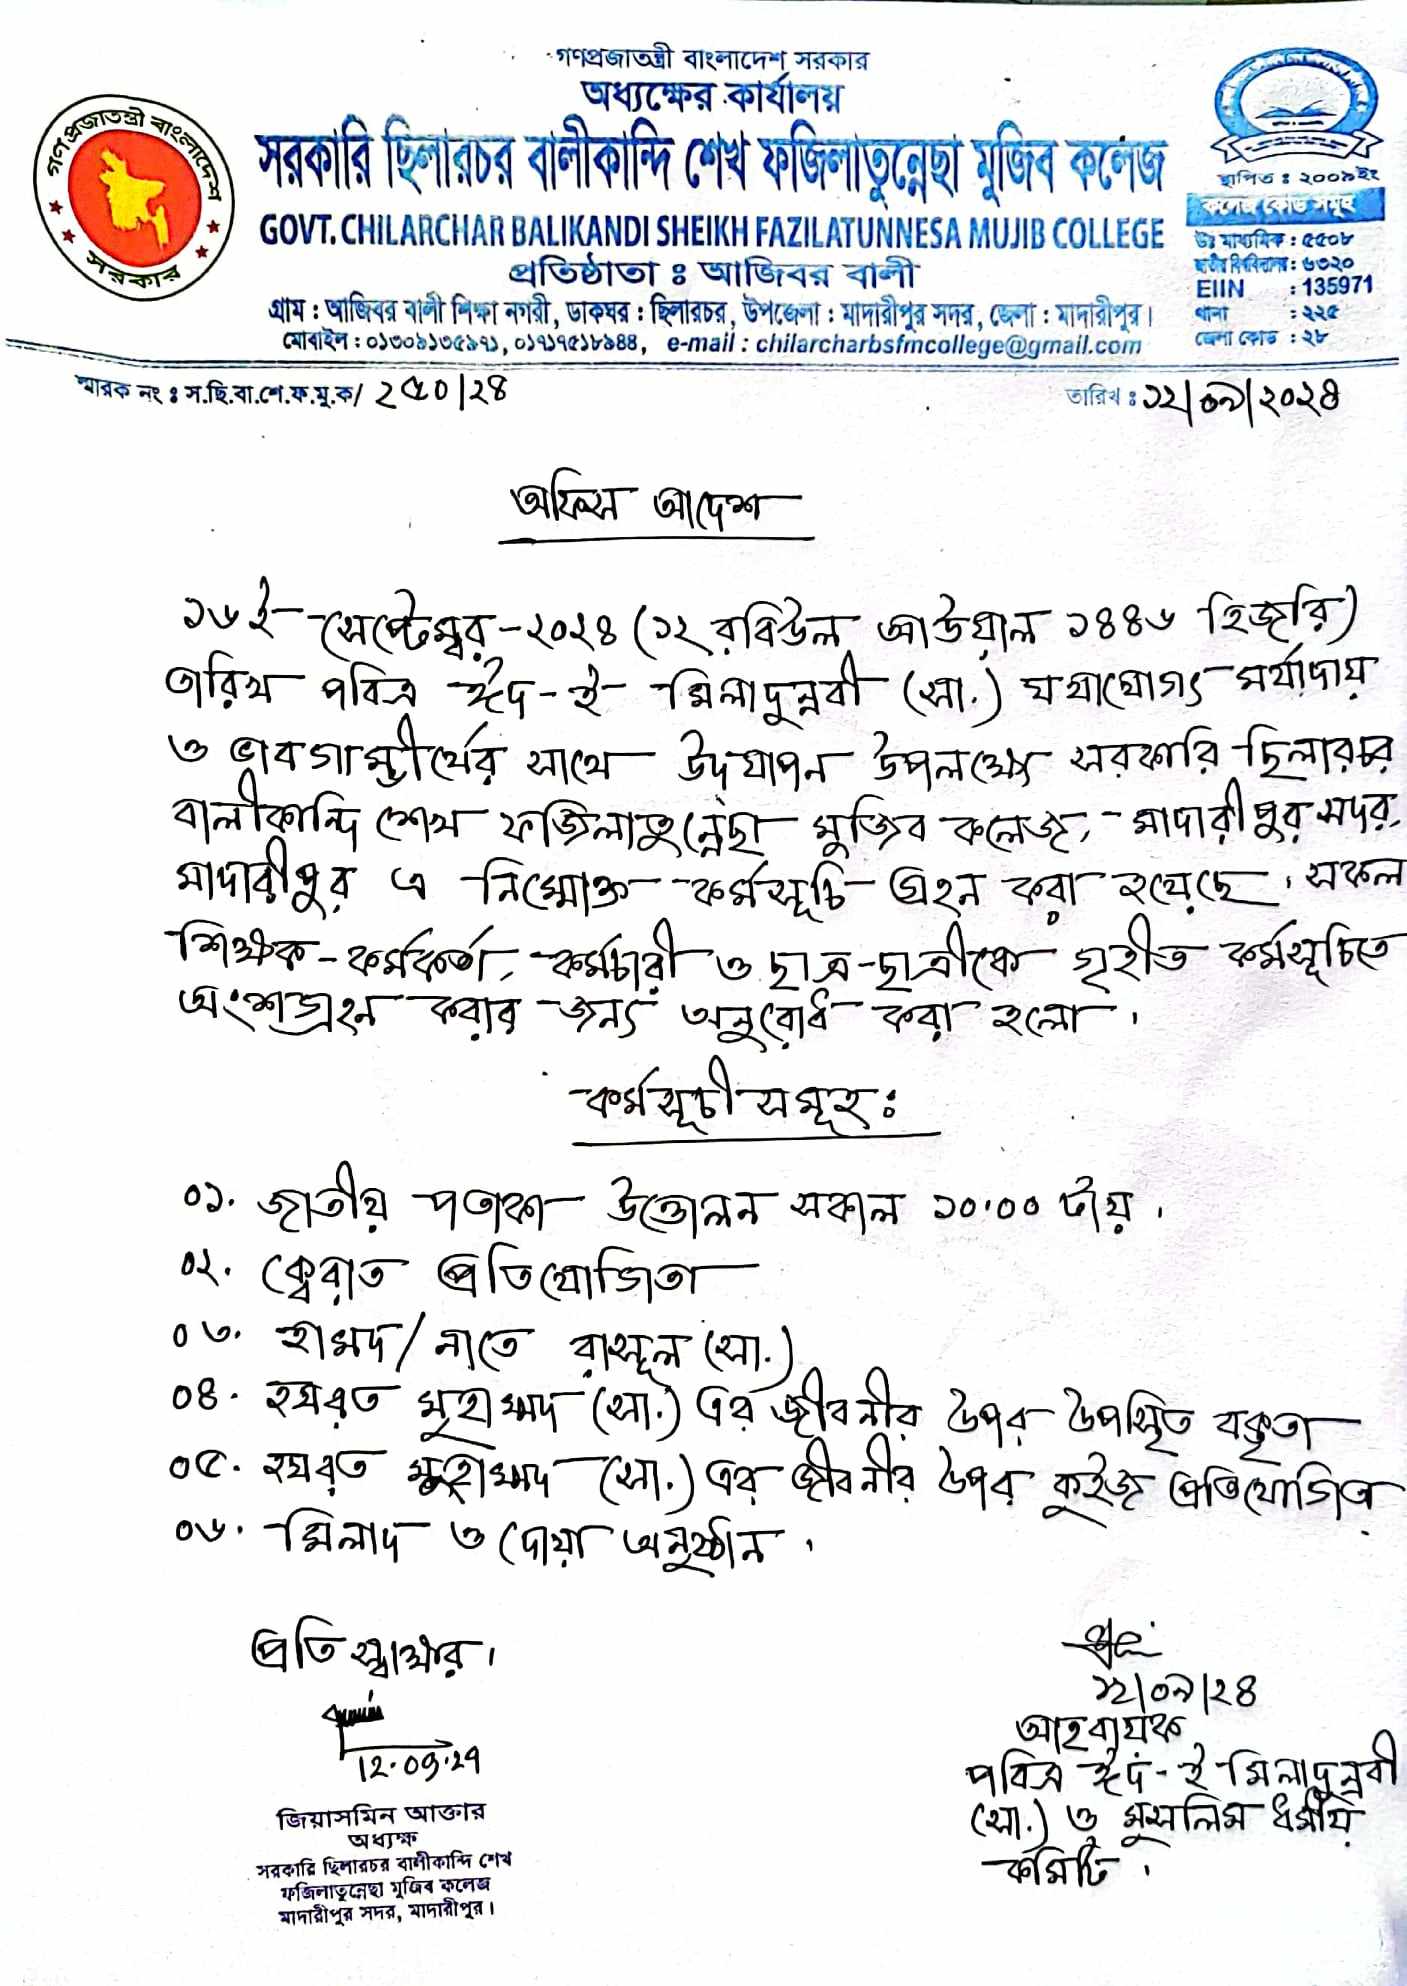 গণপ্রজাতন্ত্রী বাংলাদেশ সরকার
অধ্যক্ষের কার্যালয়
সরকারি ছিলারচর বালীকান্দি শেখ ফজিলাতুন্নেছা মুজিব কলেজ
GOVT. CHILARCHAR BALIKANDI SHEIKH FAZILATUNNESA MUJIB COLLEGE
প্রতিষ্ঠাতা : আজিবর বালী
গ্রাম : আজিবর বালী শিক্ষা নগরী, ডাকঘর : ছিলারচর, উপজেলা : মাদারীপুর সদর, জেলা : মাদারীপুর।
মোবাইল : ০১৩০৯১৩৫৯৭১, ০১৭১৭৫১৮৯৪৪, e-mail : chilarcharbsfmcollege@gmail.com
গণপ্রজাতন্ত্রী বাংলাদেশ
সরকার
স্থাপিত : ২০০৯ইং
কলেজ কোড সমূহ
উঃ মাধ্যমিক : ৫৫০৮
জাতীয় বিশ্ববিদ্যালয় : ৬৩২০
EIIN : 135971
থানা : ২২৫
জেলা কোড : ২৮
স্মারক নং : স.ছি.বা.শে.ফ.মু.ক/ ২৫০/২৪
তারিখ : ১২/০৯/২০২৪
অফিস আদেশ
১৬ই সেপ্টেম্বর-২০২৪ (১২ রবিউল আউয়াল ১৪৪৬ হিজরি)
তারিখ পবিত্র ঈদ-ই-মিলাদুন্নবী (সা.) যথাযোগ্য মর্যাদায়
ও ভাবগাম্ভীর্যের সাথে উদযাপন উপলক্ষ্যে সরকারি ছিলারচর
বালীকান্দি শেখ ফজিলাতুন্নেছা মুজিব কলেজ, মাদারীপুর সদর,
মাদারীপুর এ নিম্মোক্ত কর্মসূচি গ্রহন করা হয়েছে। সকল
শিক্ষক-কর্মকর্তা, কর্মচারী ও ছাত্র-ছাত্রীকে গৃহীত কর্মসূচিতে
অংশগ্রহন করার জন্য অনুরোধ করা হলো।
কর্মসূচী সমূহ:
০১. জাতীয় পতাকা উত্তোলন সকাল ১০.০০ টায়।
০২. ক্বেরাত প্রতিযোগিতা
০৩. হামদ/নাতে রাসূল (সা.)
০৪. হযরত মুহাম্মদ (সা.) এর জীবনীর উপর উপস্থিত বক্তৃতা
০৫. হযরত মুহাম্মদ (সা.) এর জীবনীর উপর কুইজ প্রতিযোগিতা
০৬. মিলাদ ও দোয়া অনুষ্ঠান।
প্রতি স্বাক্ষর।
12.09.24
জিয়াসমিন আক্তার
অধ্যক্ষ
সরকারি ছিলারচর বালীকান্দি শেখ
ফজিলাতুন্নেছা মুজিব কলেজ
মাদারীপুর সদর, মাদারীপুর।
১২/০৯/২৪
আহবায়ক
পবিত্র ঈদ-ই-মিলাদুন্নবী
(সা.) ও মুসলিম ধর্মীয়
কমিটি।